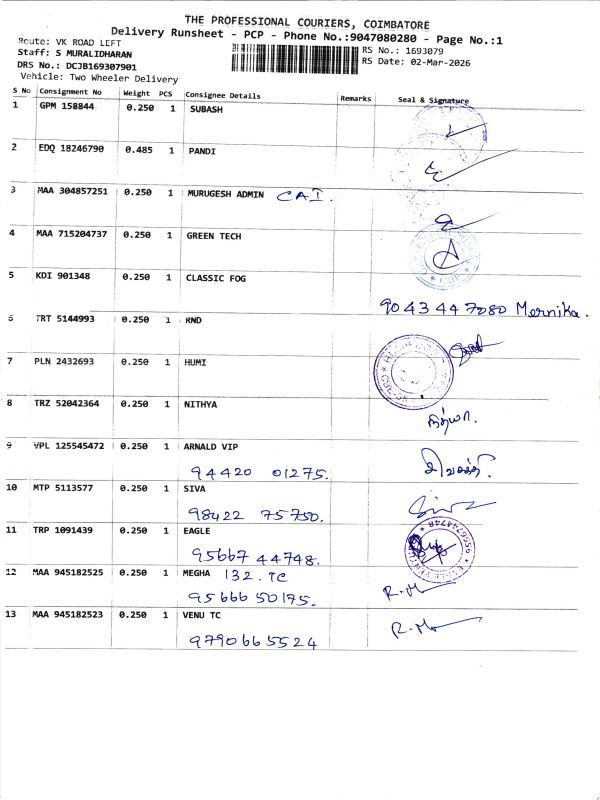 THE PROFESSIONAL COURIERS, COIMBATORE
Delivery Runsheet - PCP - Phone No.:9047080280 - Page No.:1
Route: VK ROAD LEFT
Staff: S MURALIDHARAN
DRS No.: DCJB169307901
Vehicle: Two Wheeler Delivery
RS No.: 1693079
RS Date: 02-Mar-2026
S No Consignment No Weight PCS Consignee Details Remarks Seal & Signature
1 GPM 158844 0.250 1 SUBASH
2 EDQ 18246790 0.485 1 PANDI
3 MAA 304857251 0.250 1 MURUGESH ADMIN CAI.
4 MAA 715204737 0.250 1 GREEN TECH
5 KDI 901348 0.250 1 CLASSIC FOG
9043447080 Mernika.
6 TRT 5144993 0.250 1 RND
7 PLN 2432693 0.250 1 HUMI
8 TRZ 52042364 0.250 1 NITHYA நித்யா.
9 VPL 125545472 0.250 1 ARNALD VIP
94420 01275.
10 MTP 5113577 0.250 1 SIVA
98422 75750.
11 TRP 1091439 0.250 1 EAGLE
95667 44748.
12 MAA 945182525 0.250 1 MEGHA 132. TC
95666 50175. R.M
13 MAA 945182523 0.250 1 VENU TC R.M
9790665524